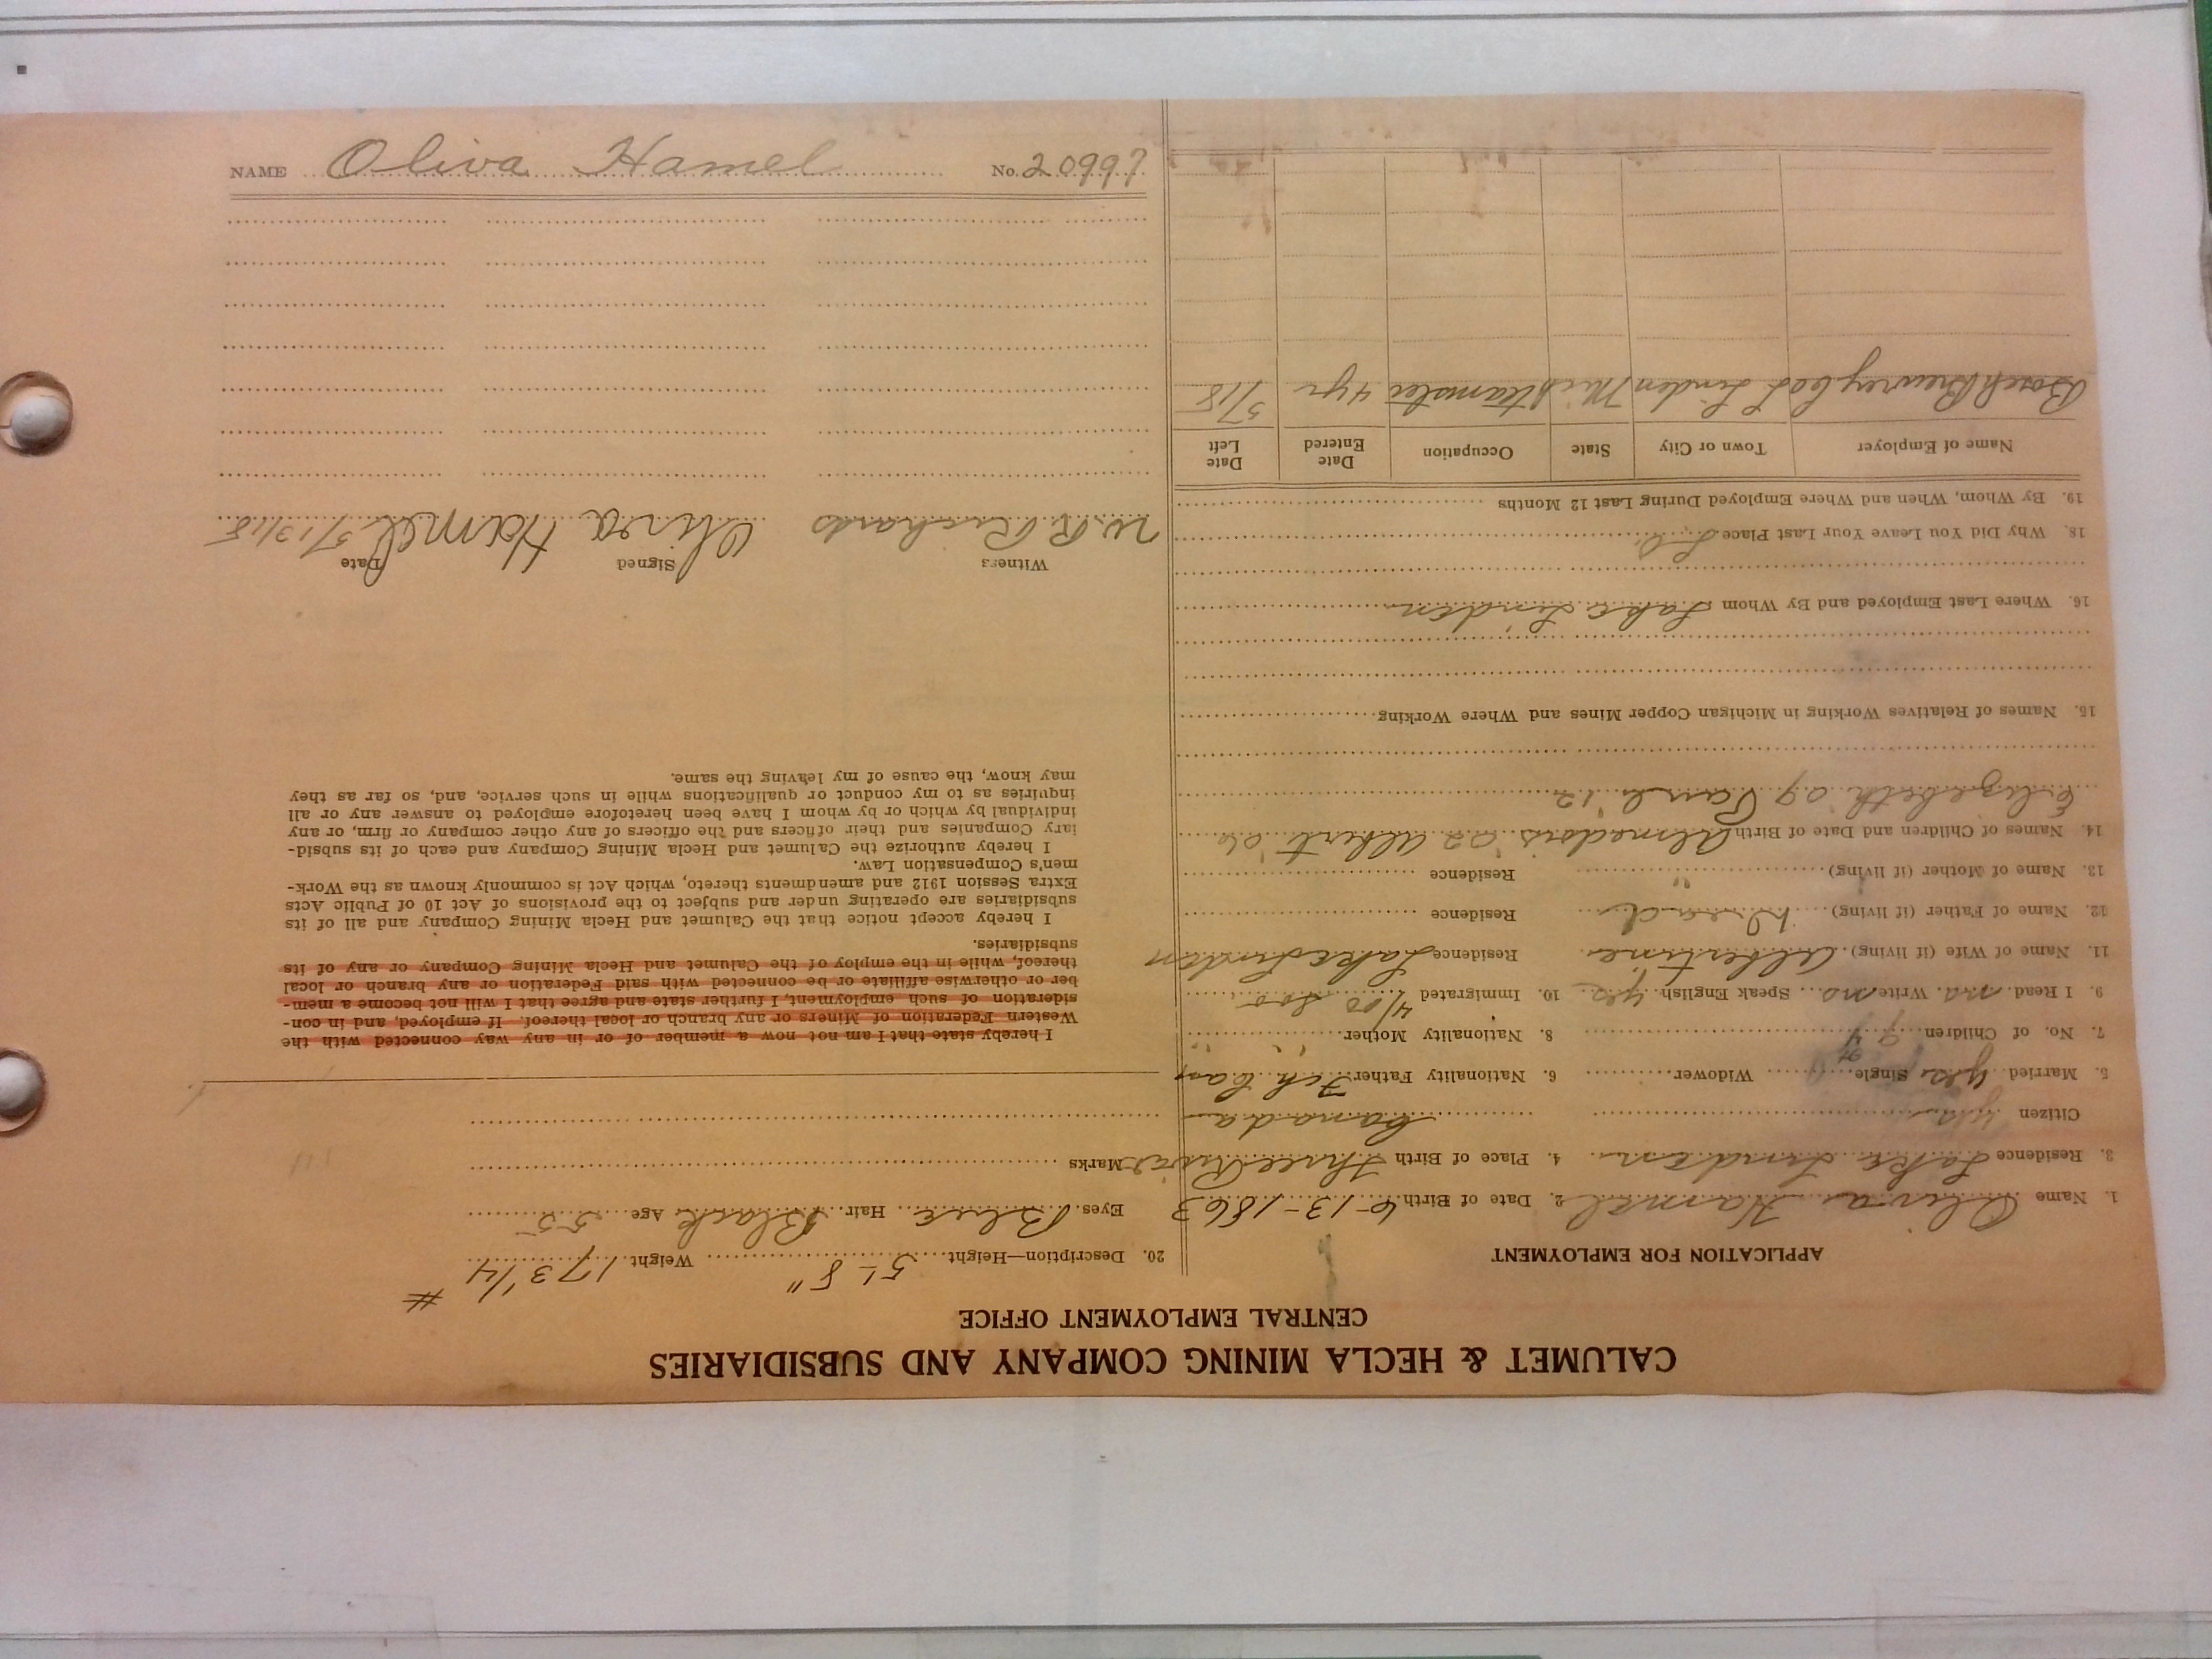 CALUMET & HECLA MINING COMPANY AND SUBSIDIARIES
CENTRAL EMPLOYMENT OFFICE
APPLICATION FOR EMPLOYMENT
1. Name Oliva Hamel 2. Date of Birth 6-13-1863
3. Residence Lake Linden 4. Place of Birth Three Rivers
Citizen yes Canada
5. Married yes Single Widower 6. Nationality Father Fch Can
7. No. of Children 4 8. Nationality Mother " "
9. I Read no Write no Speak English yes 10. Immigrated 4/00 Soo
11. Name of Wife (if living) Albertine Residence Lake Linden
12. Name of Father (if living) Dead Residence
13. Name of Mother (if living) " Residence
14. Names of Children and Date of Birth Almedois '02 Albert '06
Elizabeth 09 Paul '12
15. Names of Relatives Working in Michigan Copper Mines and Where Working
16. Where Last Employed and By Whom Lake Linden
18. Why Did You Leave Your Last Place
19. By Whom, When and Where Employed During Last 12 Months
Name of Employer Town or City State Occupation Date Entered Date Left
Bosch Brewrey Co L Linden Mich teamster 4 yr 5/18
20. Description—Height 5'-8" Weight 173 1/4 #
Eyes Blue Hair Black Age 55
Marks
I hereby state that I am not now a member of or in any way connected with the
Western Federation of Miners or any branch or local thereof. If employed, and in con-
sideration of such employment, I further state and agree that I will not become a mem-
ber or otherwise affiliate or be connected with said Federation or any branch or local
thereof, while in the employ of the Calumet and Hecla Mining Company or any of its
subsidiaries.
I hereby accept notice that the Calumet and Hecla Mining Company and all of its
subsidiaries are operating under and subject to the provisions of Act 10 of Public Acts
Extra Session 1912 and amendments thereto, which Act is commonly known as the Work-
men's Compensation Law.
I hereby authorize the Calumet and Hecla Mining Company and each of its subsid-
iary Companies and their officers and the officers of any other company or firm, or any
individual by which or by whom I have been heretofore employed to answer any or all
inquiries as to my conduct or qualifications while in such service, and, so far as they
may know, the cause of my leaving the same.
Witness Signed Date
W. R. Richards Oliva Hamel 5/13/18
NAME Oliva Hamel No. 20997